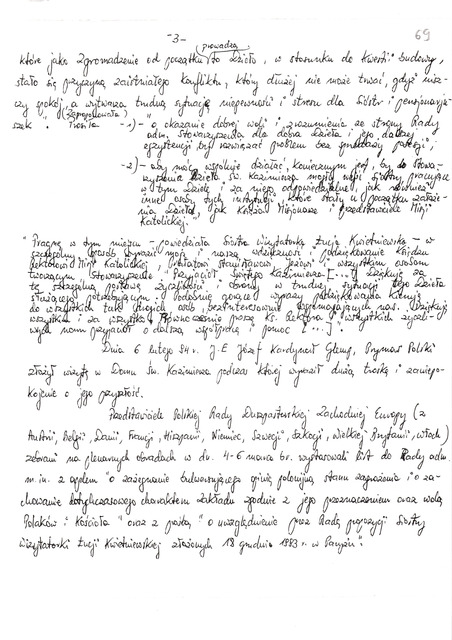 - 3 -
69
prowadzą
które jako Zgromadzenie od początku to Dzieło, w stosunku do kwestii budowy,
stało się przyczyną zaistniałego konfliktu, który dłużej nie może trwać, gdyż nisz-
czy spokój, a wytwarza trudną sytuację niepewności i stresu dla Sióstr i pensjonarju-
szek.
- 1) - "o okazanie dobrej woli i zrozumienia ze strony Rady
adm. Stowarzyszenia dla dobra Dzieła i jego dalszej
egzystencji, by rozwiązać problem bez
- 2) - aby móc wspólnie działać, koniecznym jest, by do Stowa-
rzyszenia Dzieła św. Kazimierza mogły wejść Siostry pracujące
w tym Dziele i za niego odpowiedzialne, jak również
inne osoby tych instytucji, które stały u początku założe-
nia Dzieła, jak Księża Misjonarze i Przedstawiciele Misji
Katolickiej.
"Pragnę w tym miejscu - powiedziała Siostra Wizytatorka Łucja Kwietniewska - w
szczególny sposób wyrazić moją i naszą wdzięczność i podziękowanie Księdzu
Rektorowi Misji Katolickiej, Prałatowi Stanisławowi Jeżowi i wszystkim osobom
tworzącym Stowarzyszenie "Przyjaciół Świętego Kazimierza" [...]. Dziękuję za
tę szczególną postawę życzliwości i obrony w trudnej sytuacji tego Dzieła
służącego potrzebującym. Podobnie gorące wyrazy podziękowania kieruję
do wszystkich tak drogich osób bezinteresownie wspomagających nas. Dziękuję
wszystkim i za wszystko. Równocześnie proszę Ks. Rektora i wszystkich życzli-
wych nam przyjaciół o dalszą współpracę i pomoc [...]".
Dnia 6 lutego 84 r. J.E. Józef Kardynał Glemp, Prymas Polski
złożył wizytę w Domu św. Kazimierza podczas której wyraził dużą troskę i zaniepo-
kojenie o jego przyszłość.
Przedstawiciele Polskiej Rady Duszpasterskiej Zachodniej Europy (z
Austrii, Belgii, Danii, Francji, Hiszpanii, Niemiec, Szwecji, Szkocji, Wielkiej Brytanii, Włoch)
zebrani na plenarnych obradach w dn. 4-6 marca br. wystosowali list do Rady adm.
m. in. z apelem "o zażegnanie bulwersującego opinię polonijną stanu zagrożenia i o za-
chowanie dotychczasowego charakteru zakładu zgodnie z jego przeznaczeniem oraz wolą
Polaków i Kościoła" oraz z prośbą "o uwzględnienie przez Radę propozycji Siostry
Wizytatorki Łucji Kwietniewskiej złożonych 18 grudnia 1983 r. w Paryżu".